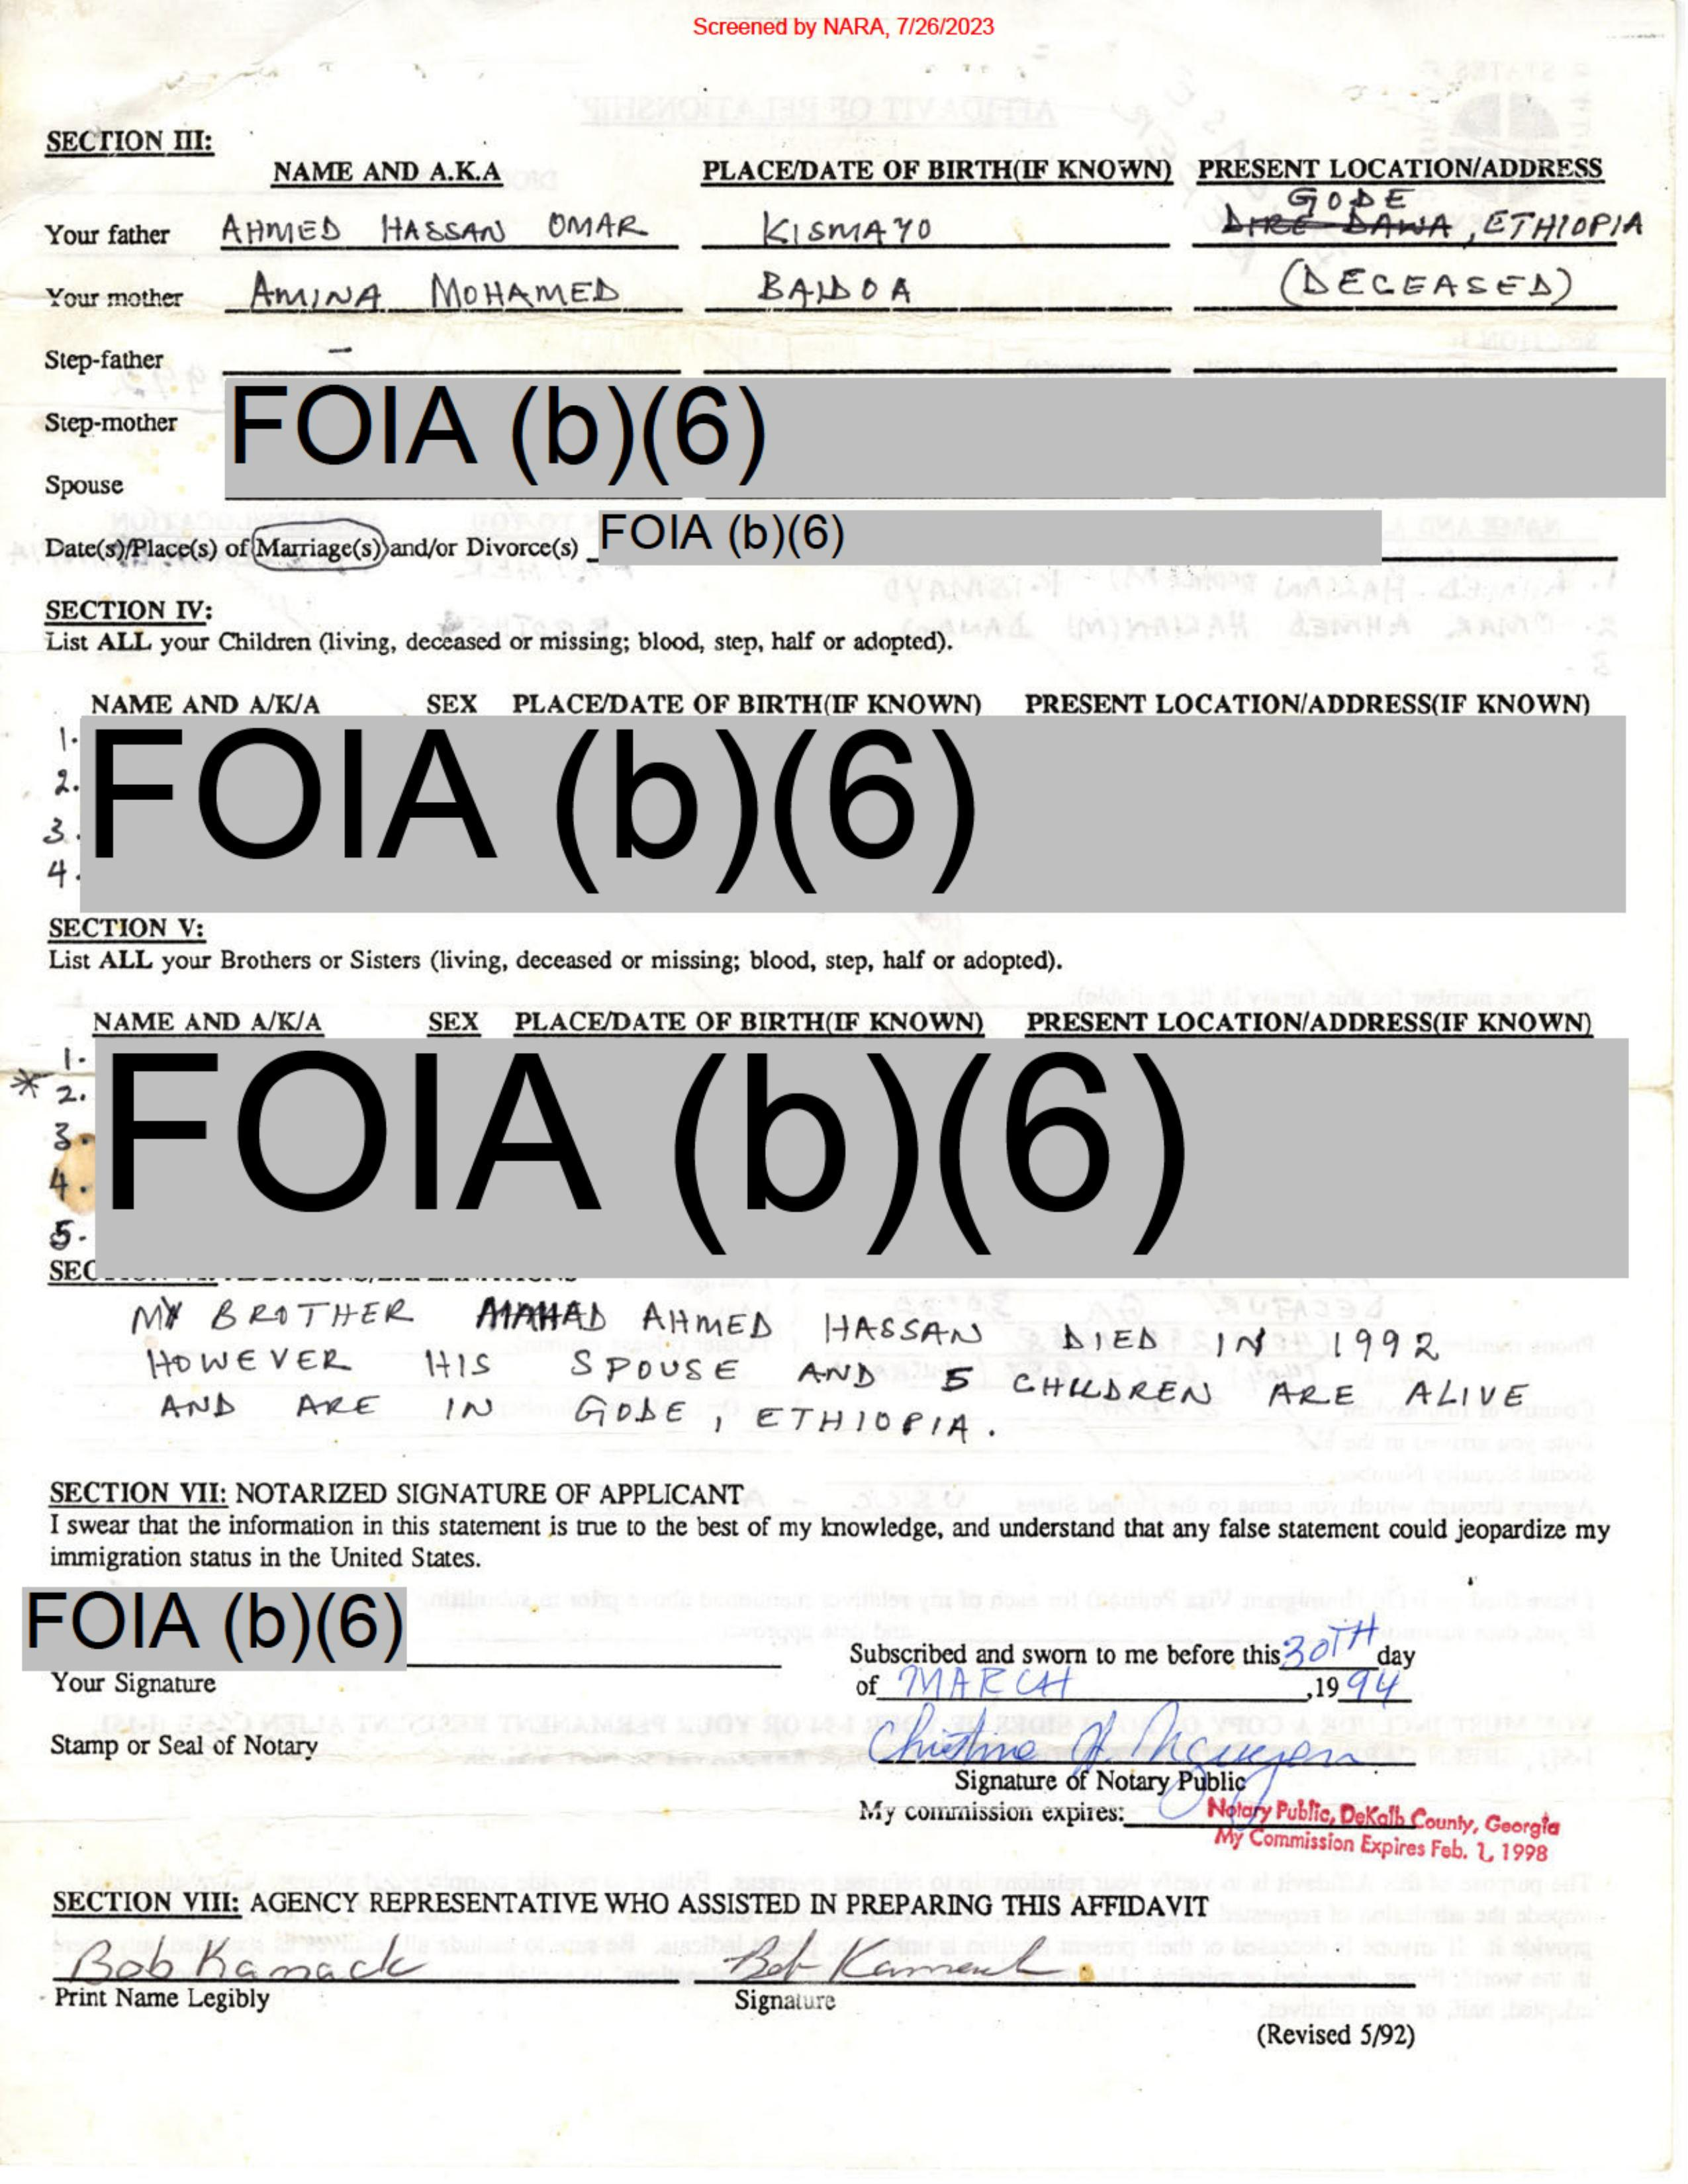 Screened by NARA, 7/26/2023
SECTION III:
NAME AND A.K.A PLACE/DATE OF BIRTH(IF KNOWN) PRESENT LOCATION/ADDRESS
GODE
Your father AHMED HASSAN OMAR KISMAYO DIRE DAWA, ETHIOPIA
Your mother AMINA MOHAMED BAIDOA (DECEASED)
Step-father -
Step-mother FOIA (b)(6)
Spouse
Date(s)/Place(s) of Marriage(s) and/or Divorce(s) FOIA (b)(6)
SECTION IV:
List ALL your Children (living, deceased or missing; blood, step, half or adopted).
NAME AND A/K/A SEX PLACE/DATE OF BIRTH(IF KNOWN) PRESENT LOCATION/ADDRESS(IF KNOWN)
1. FOIA (b)(6)
2.
3.
4.
SECTION V:
List ALL your Brothers or Sisters (living, deceased or missing; blood, step, half or adopted).
NAME AND A/K/A SEX PLACE/DATE OF BIRTH(IF KNOWN) PRESENT LOCATION/ADDRESS(IF KNOWN)
1. FOIA (b)(6)
* 2.
3.
4.
5.
SEC
MY BROTHER AHMED HASSAN DIED IN 1992
HOWEVER HIS SPOUSE AND 5 CHILDREN ARE ALIVE
AND ARE IN GODE, ETHIOPIA.
SECTION VII: NOTARIZED SIGNATURE OF APPLICANT
I swear that the information in this statement is true to the best of my knowledge, and understand that any false statement could jeopardize my
immigration status in the United States.
FOIA (b)(6)
Your Signature
Subscribed and sworn to me before this 30TH day
of MARCH ,19 94
Stamp or Seal of Notary
Signature of Notary Public
My commission expires: Notary Public, DeKalb County, Georgia
My Commission Expires Feb. 1, 1998
SECTION VIII: AGENCY REPRESENTATIVE WHO ASSISTED IN PREPARING THIS AFFIDAVIT
Bob Kamack Bob Kamack
Print Name Legibly Signature
(Revised 5/92)